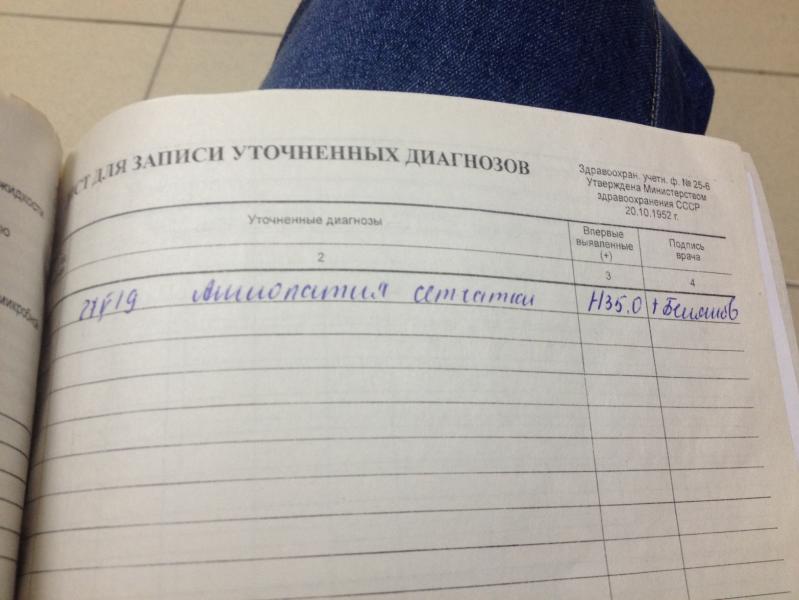 СТ ДЛЯ ЗАПИСИ УТОЧНЕННЫХ ДИАГНОЗОВ
Здравоохран. учетн. ф. № 25-6
Утверждена Министерством
здравоохранения СССР
20.10.1952 г.
Уточненные диагнозы
Впервые
выявленные
(+)
Подпись
врача
2
3
4
Ангиопатия сетчатки Н35.0 +
жидкости
ю
микробна